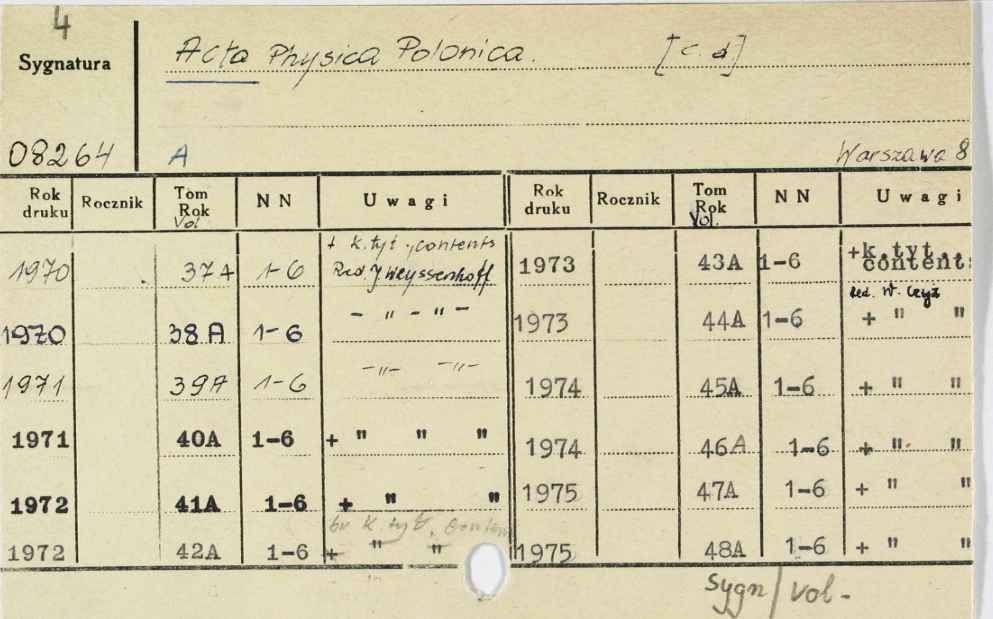 4
Sygnatura
Acta Physica Polonica. [c. d]
08264 A Warszawa 8
Rok druku Rocznik Tom Rok Vol NN Uwagi Rok druku Rocznik Tom Rok Vol. NN Uwagi
1970 37A 1-6 + k.tyt., contents Red J Weyssenhoff 1973 43A 1-6 +k.tyt., contents Red. W. Czyż
1970 38A 1-6 - " - " - 1973 44A 1-6 + " "
1971 39A 1-6 -"- -"- 1974 45A 1-6 + " "
1971 40A 1-6 + " " " 1974 46A 1-6 + " "
1972 41A 1-6 + " " 1975 47A 1-6 + " "
br k. tyt.
1972 42A 1-6 + " " 1975 48A 1-6 + " "
sygn/vol-